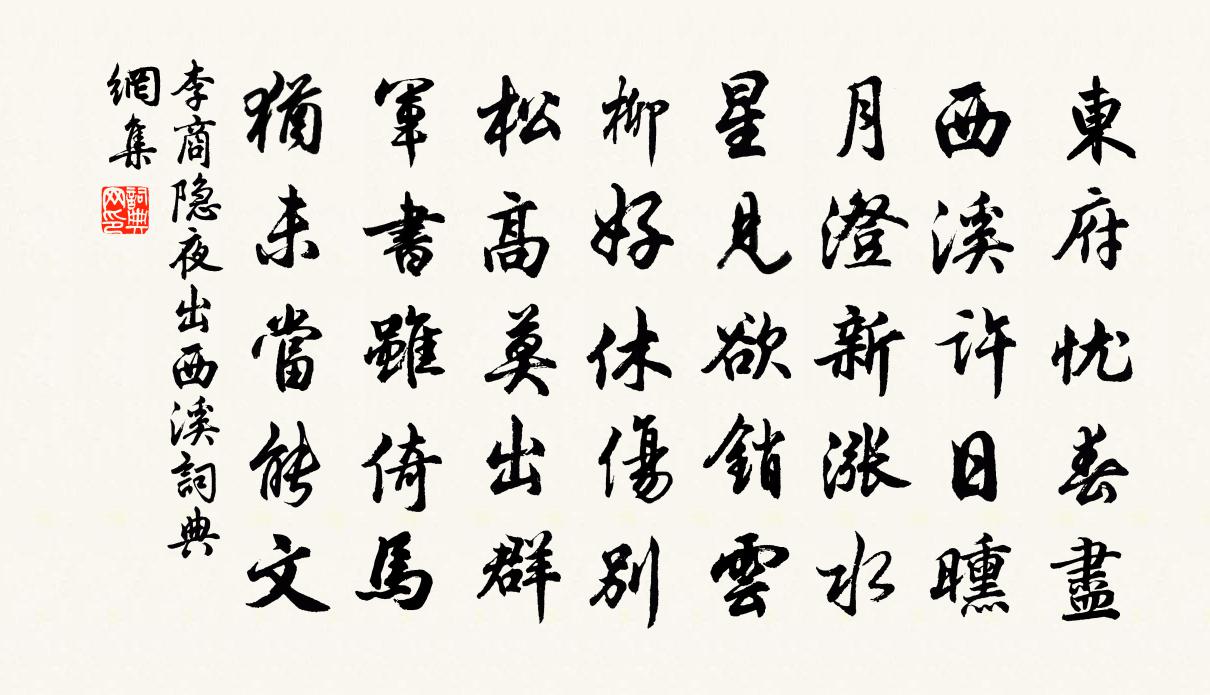 東府忧春盡
西溪許日曛
月澄新漲水
星見欲銷雲
柳好休傷別
松高莫出群
軍書雖倚馬
猶未當能文
李商隐夜出西溪詞典
網集
詞典
网印